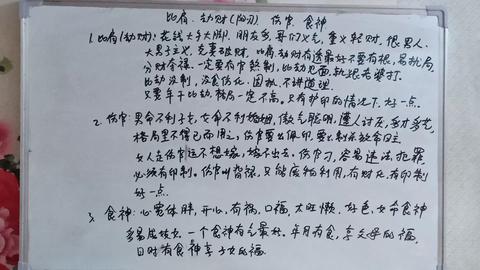 比肩、劫财(阳刃) 伤官、食神
1. 比肩(劫财): 花钱大手大脚, 朋友多, 哥们义气, 重义轻财, 很男人、
大男子主义, 克妻破财, 比肩、劫财有透最好不要有根, 易
分财夺禄, 一定要有官杀制, 比劫克妻
比劫没制, 没食伤化, 固执、不讲道理
只要年干比劫, 格局一定不高。只有护印的情况下, 好一点。
2、伤官: 男命不利子女, 女命不利婚姻, 傲气聪明, 遭人讨厌, 多才多艺,
格局里不得已而用之, 伤官要么佩印, 要么制杀救命日主
女人走伤官运不想嫁, 嫁不出去, 伤官刃, 容易违法犯罪
必须有印制。伤官叫 只能 利用, 有财化、有印制
好一点。
3、食神: 心宽体胖, 开心, 有福, 口福, 太旺懒, 好色, 女命食神
多易成妓女, 一个食神有气最好。年月有食, 享父母的福,
日时有食神享子女的福。